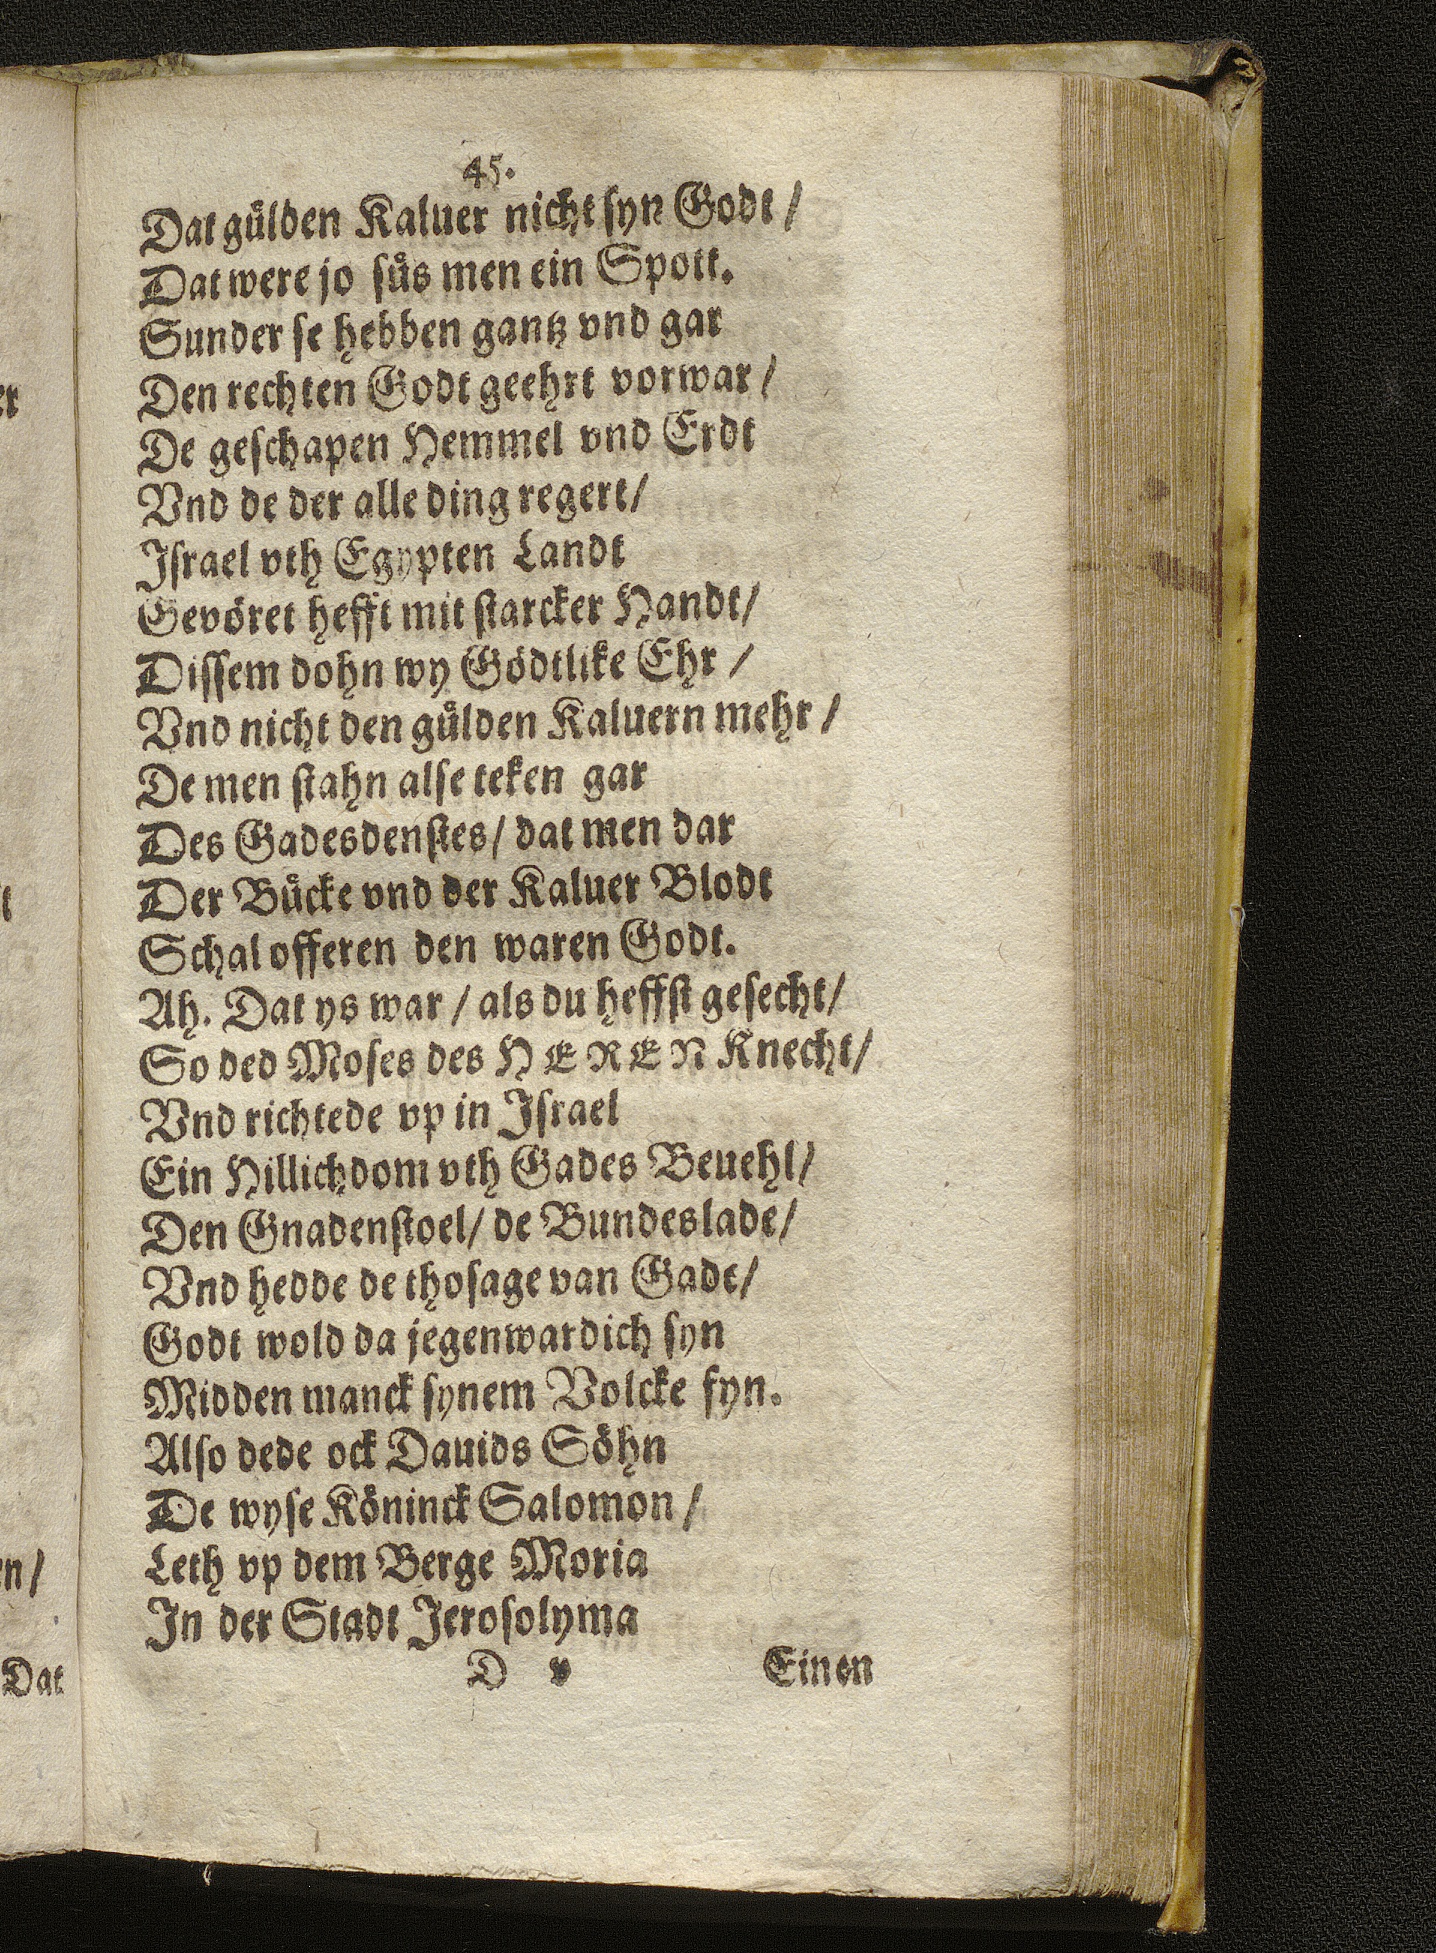 45.
Dat guͤlden Kaluer nicht syn Godt /
Dat were jo suͤs men ein Spott.
Sunder se hebben gantz vnd gar
Den rechten Godt geehrt vorwar /
De geschapen Hemmel vnd Erdt
Vnd de der alle ding regert/
Israel vth Egypten Landt
Gevöret hefft mit starcker Handt/
Dissem dohn wy Gödtlike Ehr /
Vnd nicht den guͤlden Kaluern mehr /
De men stahn alse teken gar
Des Gadesdenstes/ dat men dar
Der Buͤcke vnd der Kaluer Blodt
Schal offeren den waren Godt.
Ah. Dat ys war / als du heffst gesecht/
So ded Moses des HEREN Knecht/
Vnd richtede vp in Israel
Ein Hillichdom vth Gades Beuehl/
Den Gnadenstoel/ de Bundeslade/
Vnd hedde de thosage van Gadt/
Godt wold da jegenwardich syn
Midden manck synem Volcke fyn.
Also dede ock Dauids Söhn
De wyse Köninck Salomon /
Leth vp dem Berge Moria
In der Stadt Jerosolyma
D v Einen
er
t
en/
Dat